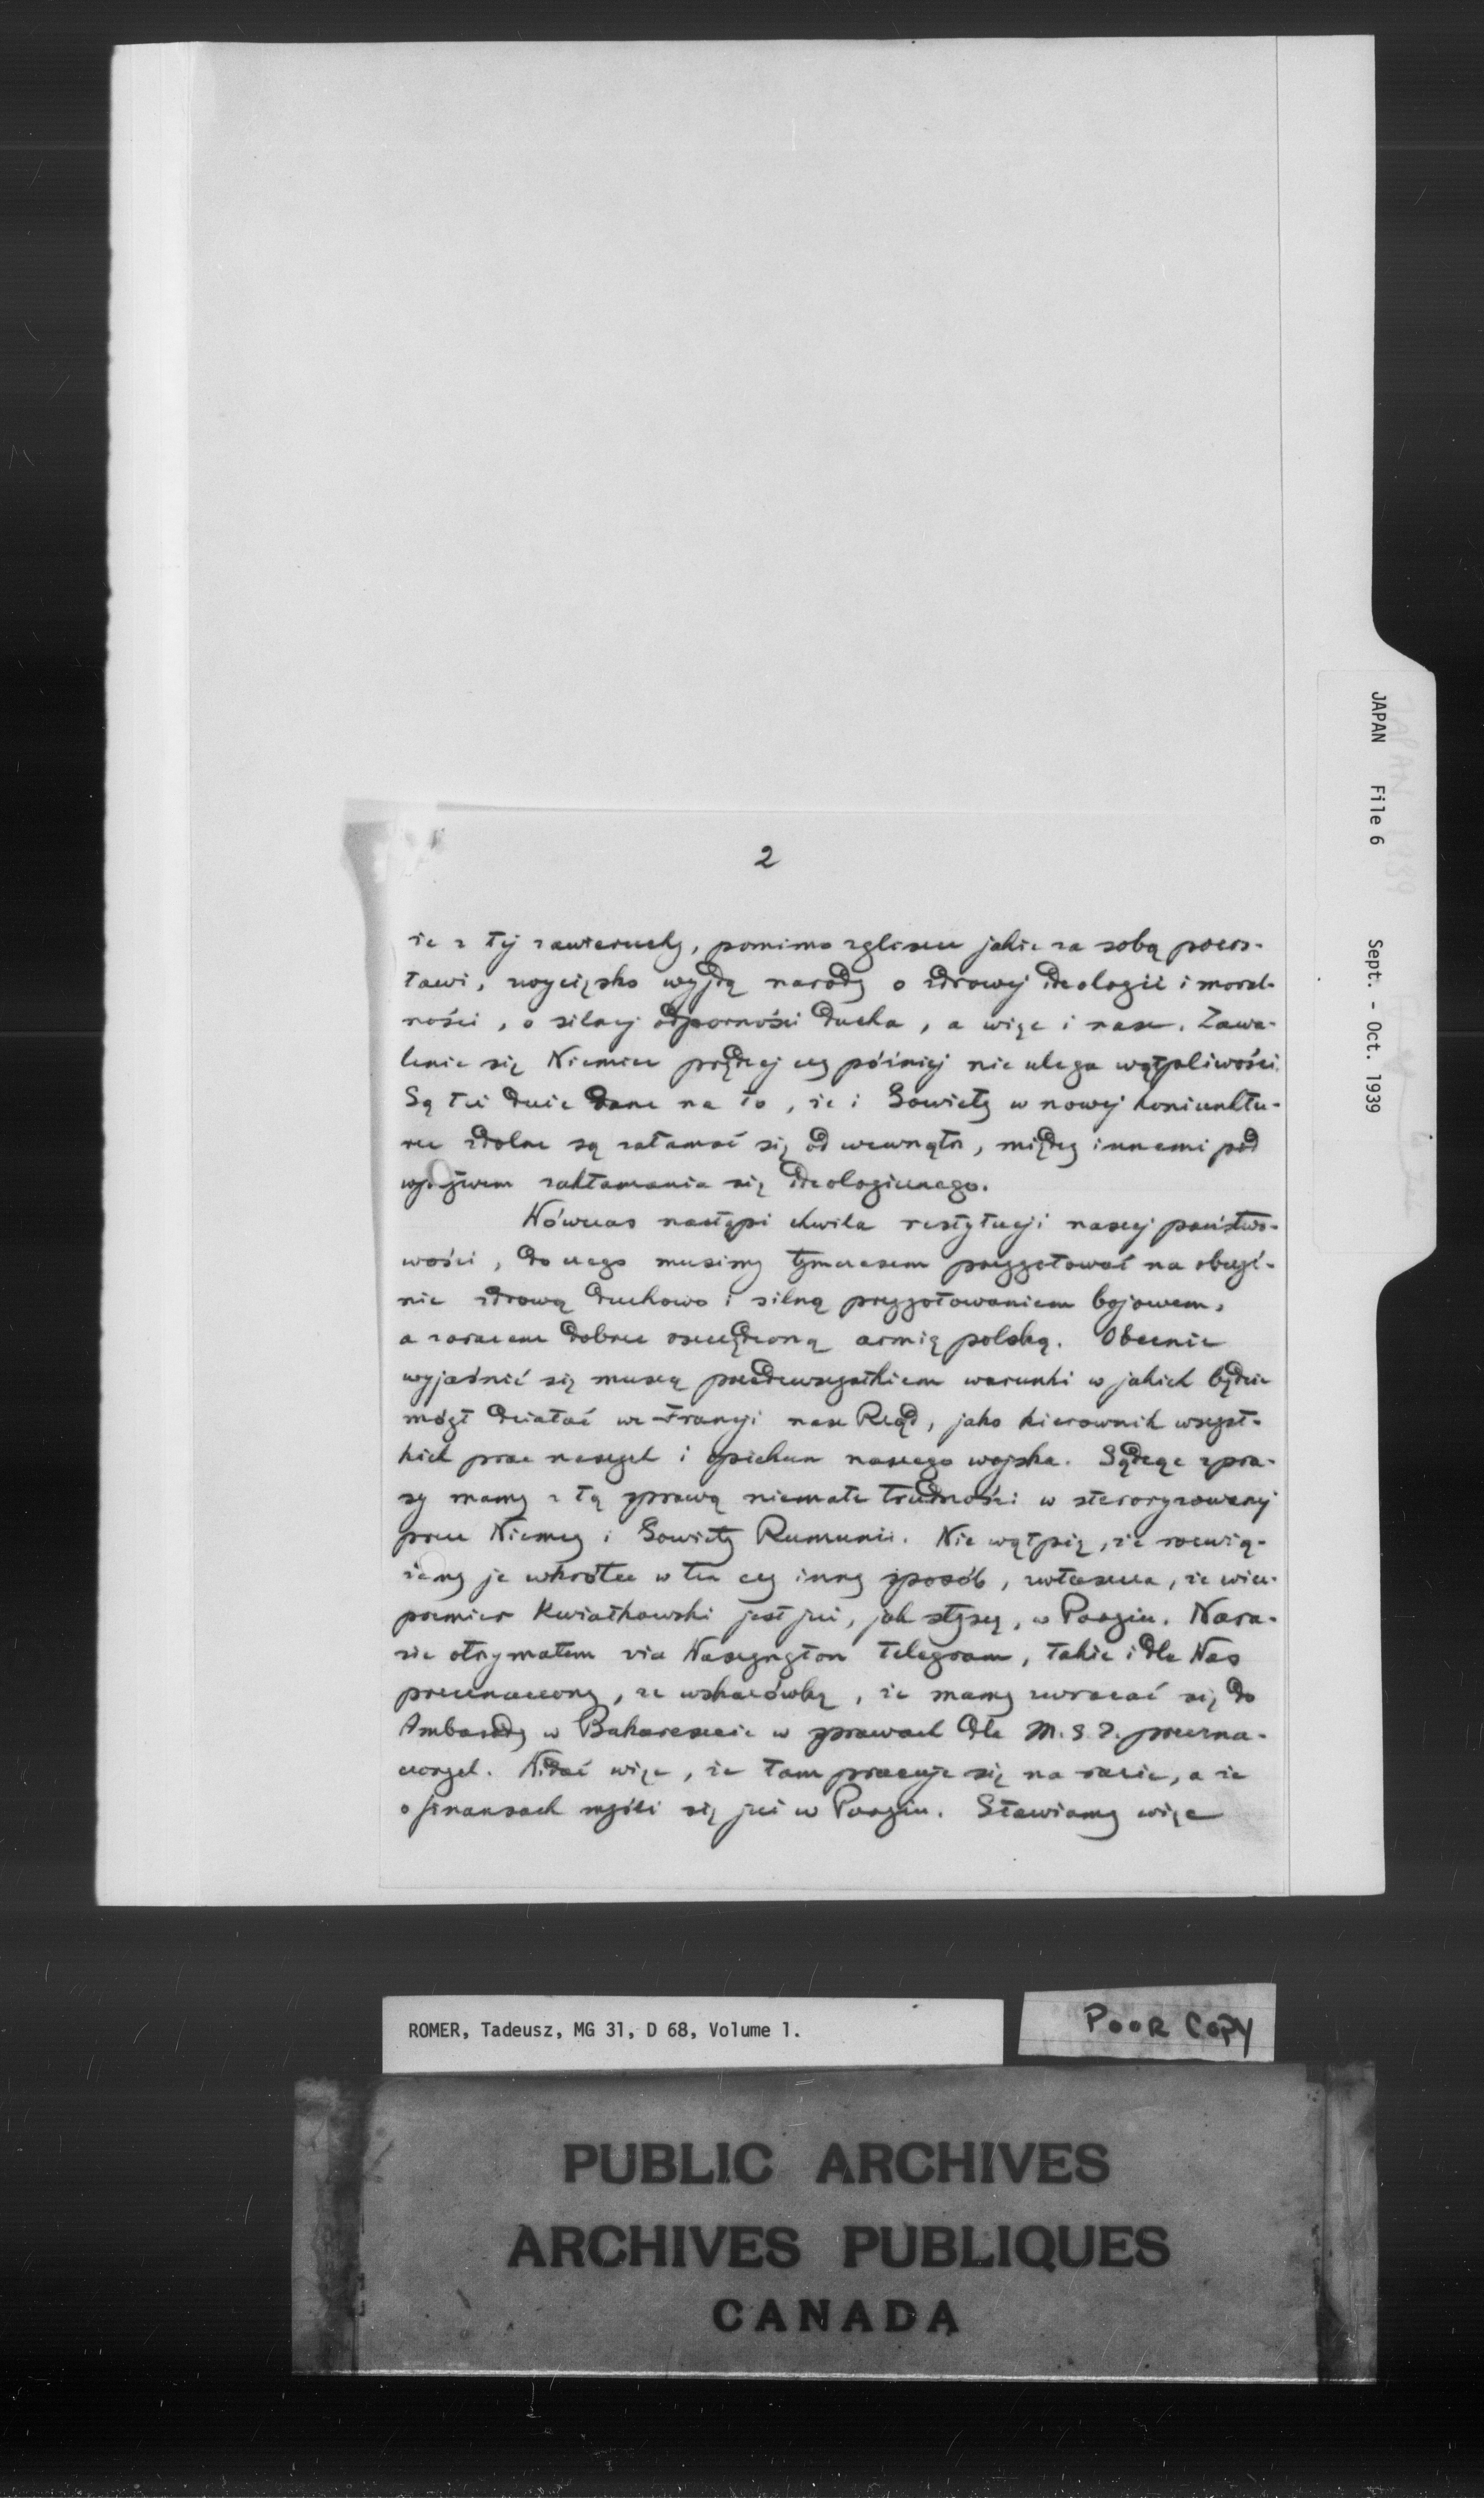 2
że z tej zawieruchy, pomimo zgliszcz jakie za sobą pozos-
tawi, zwycięsko wyjdą narody o zdrowej ideologii i moral-
ności, o silnej odporności ducha, a więc i nasz. Zawa-
lenie się Niemiec prędzej czy później nie ulega wątpliwości.
Są też duże dane na to, że i Sowiety w nowej koniunktu-
rze zdolne są załamać się od wewnątrz, między innemi pod
wpływem zakłamania się ideologicznego.
Wówczas nastąpi chwila restytucji naszej państwo-
wości, do czego musimy tymczasem przygotować na obczyź-
nie zdrową duchowo i silną przygotowaniem bojowem,
a zarazem dobrze oszczędzoną armię polską. Obecnie
wyjaśnić się muszą przedewszystkiem warunki w jakich będzie
mógł działać we Francji nasz Rząd, jako kierownik wszyst-
kich prac naszych i opiekun naszego wojska. Sądząc z pra-
sy mamy z tą sprawą niemałe trudności w sterroryzowanej
przez Niemcy i Sowiety Rumunii. Nie wątpię, że rozwią-
żemy je wkrótce w ten czy inny sposób, zwłaszcza, że wice-
premier Kwiatkowski jest już, jak słyszę, w Paryżu. Nara-
zie otrzymałem via Waszyngton telegram, także i dla Was
przeznaczony, ze wskazówką, że mamy zwracać się do
Ambasady w Bukareszcie w sprawach dla M.S.Z. przezna-
czonych. Widać więc, że tam pracuje się na razie, a że
o finansach myśli się już w Paryżu. Stawiamy więc
JAPAN File 6 Sept. - Oct. 1939
ROMER, Tadeusz, MG 31, D 68, Volume 1.
POOR COPY
PUBLIC ARCHIVES
ARCHIVES PUBLIQUES
CANADA